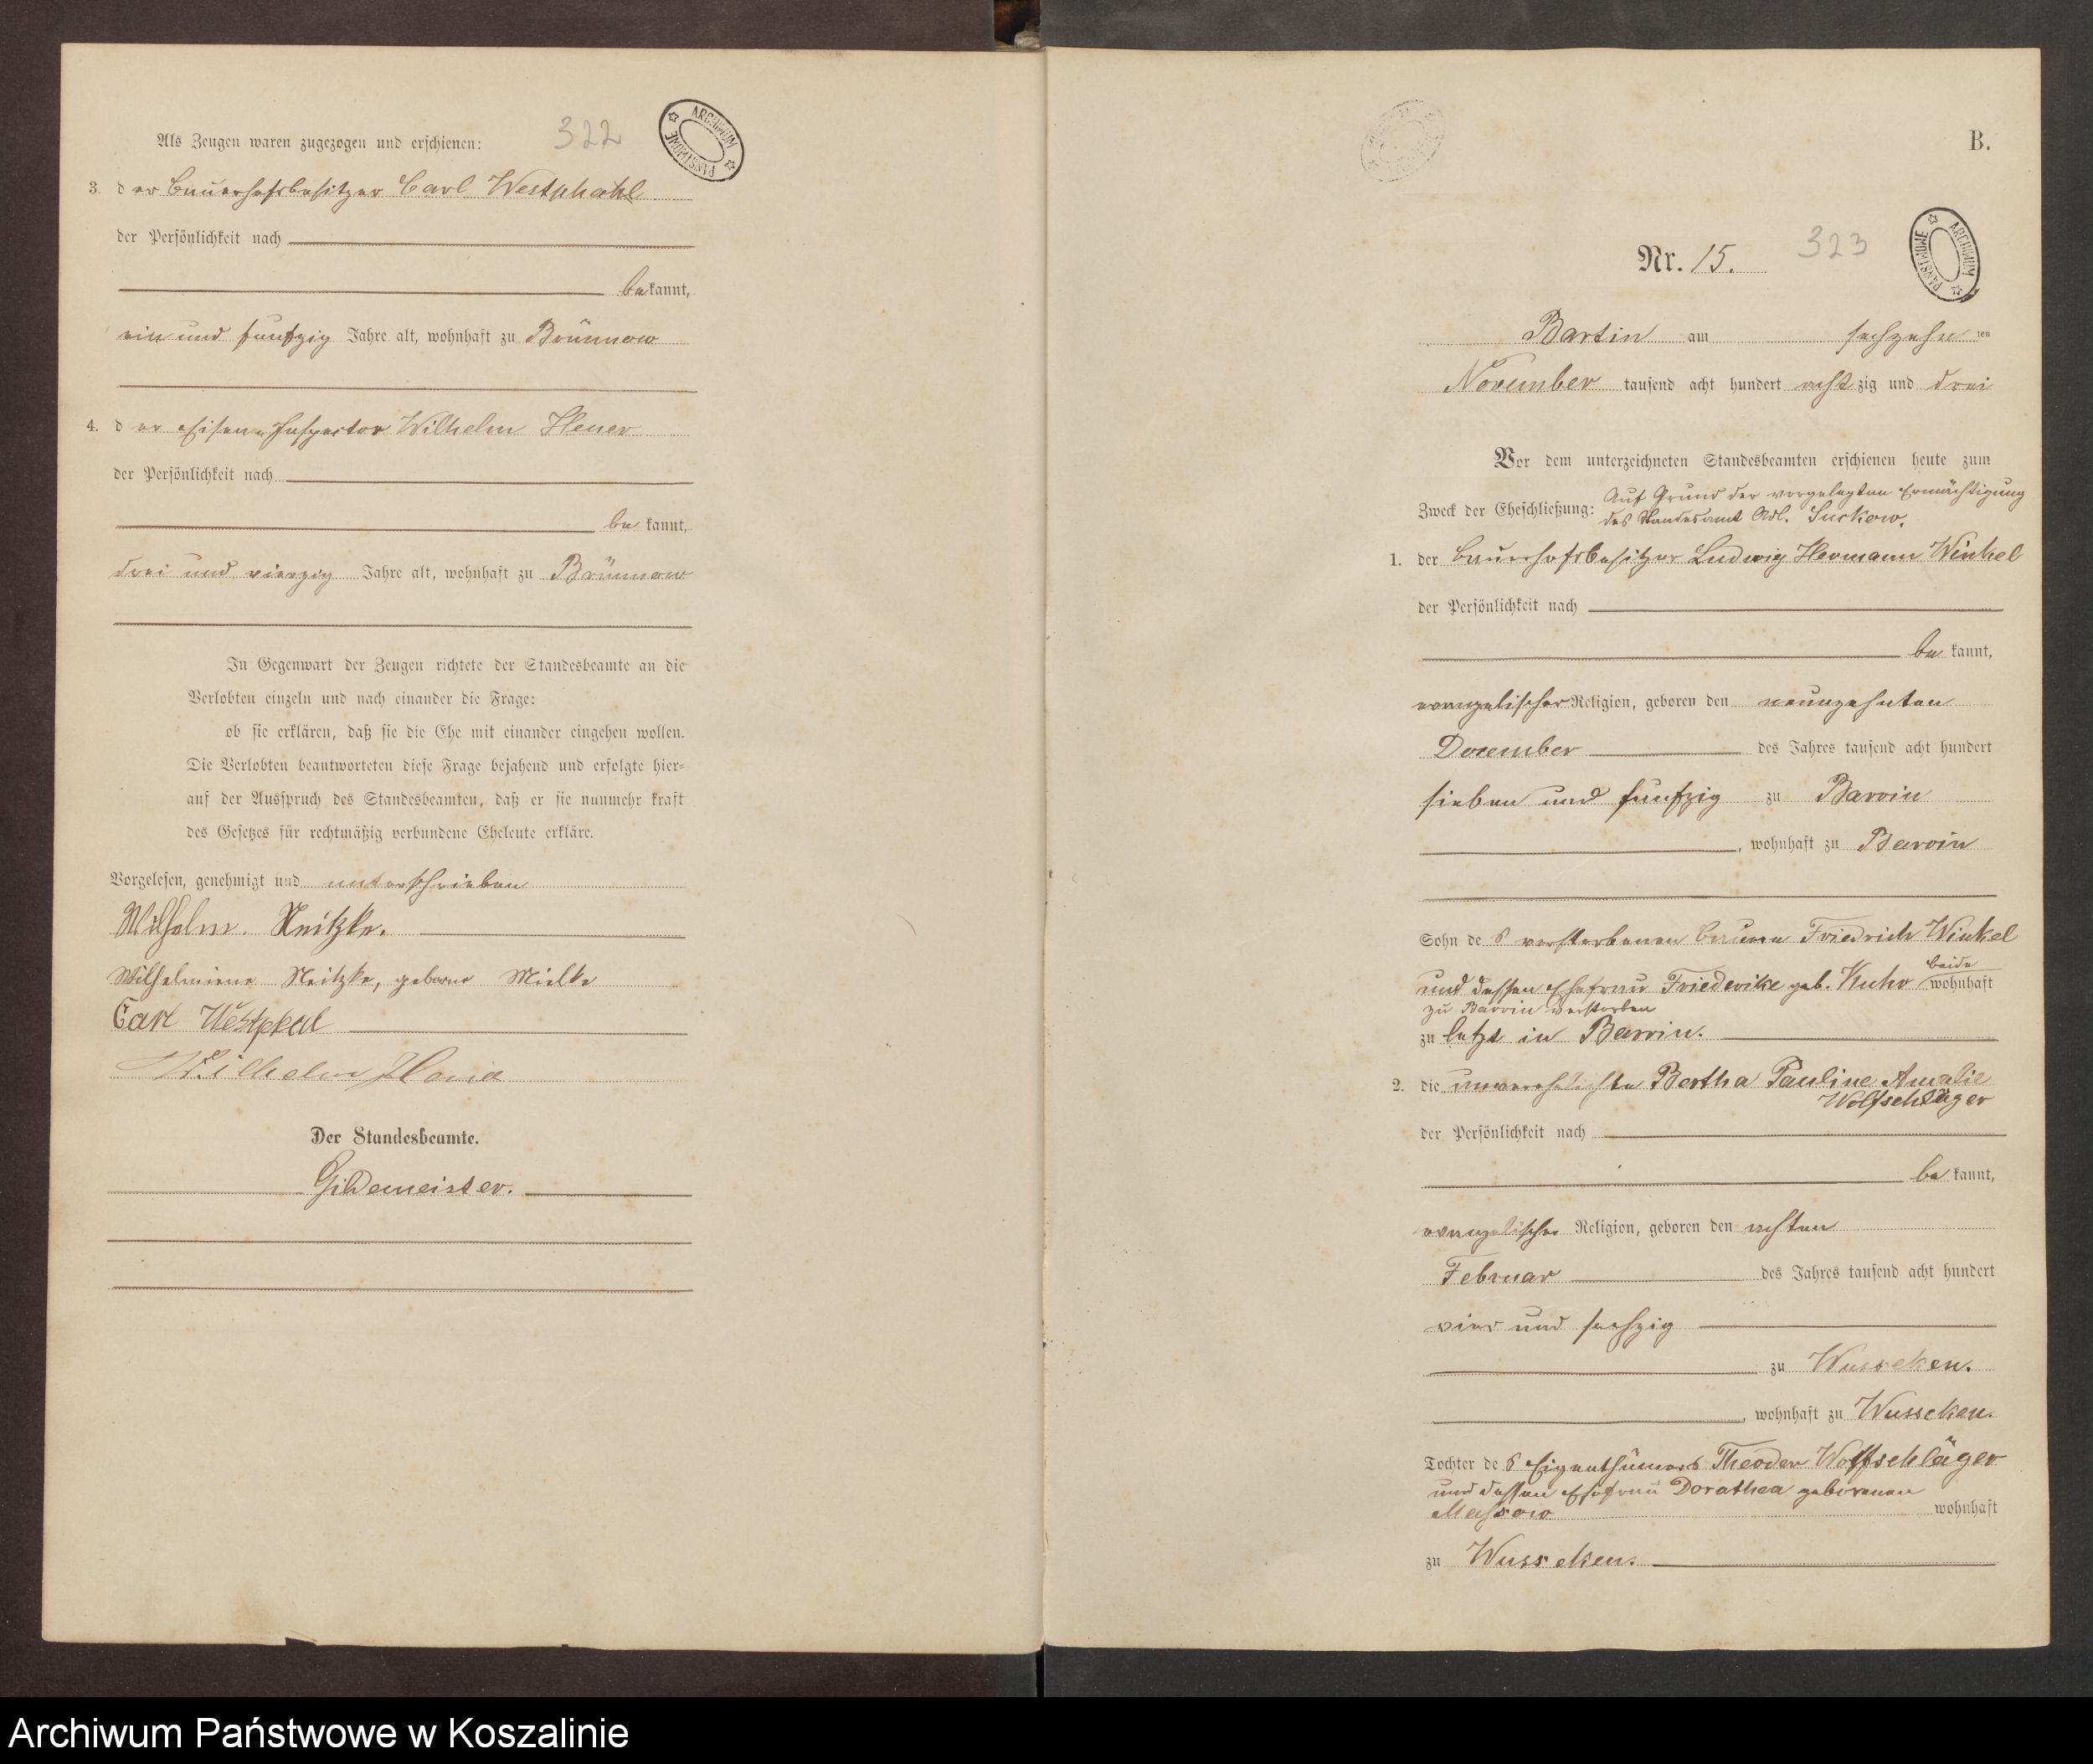 322
ARCHIWUM PAŃSTWOWE
Als Zeugen waren zugezogen und erschienen:
3. der Bauerhofsbesitzer Carl Westphahl
der Persönlichkeit nach
bekannt,
ein und funfzig Jahre alt, wohnhaft zu Brünnow
4. der Wilhelm Heuer
der Persönlichkeit nach
bekannt,
drei und vierzig Jahre alt, wohnhaft zu Brünnow
In Gegenwart der Zeugen richtete der Standesbeamte an die
Verlobten einzeln und nach einander die Frage:
ob sie erklären, daß sie die Ehe mit einander eingehen wollen.
Die Verlobten beantworteten diese Frage bejahend und erfolgte hier-
auf der Ausspruch des Standesbeamten, daß er sie nunmehr kraft
des Gesetzes für rechtmäßig verbundene Eheleute erkläre.
Vorgelesen, genehmigt und unterschrieben
Wilhelm. Neitzke.
Wilhelmine Neitzke, geborne Mielke
Carl Westphal
Wilhelm
Der Standesbeamte.
Gildemeister.
B.
Nr. 15.
323
ARCHIWUM PAŃSTWOWE
Bartin am sechzehnten
November tausend acht hundert achtzig und drei
Vor dem unterzeichneten Standesbeamten erschienen heute zum
Zweck der Eheschließung: Auf Grund der vorgelegten Ermächtigung
des Standesamt Adl. Suckow.
1. der Bauerhofsbesitzer Ludwig Hermann Winkel
der Persönlichkeit nach
bekannt,
evangelischer Religion, geboren den neunzehnten
December des Jahres tausend acht hundert
sieben und funfzig zu Barvin
, wohnhaft zu Barvin
Sohn des verstorbenen Bauern Friedrich Winkel
und dessen Ehefrau Friederike geb. Kuhr beide wohnhaft
zu Barvin verstorben
zu letzt in Barvin.
2. die unverehelichte Bertha Pauline Amalie
Wolfschläger
der Persönlichkeit nach
bekannt,
evangelischer Religion, geboren den achten
Februar des Jahres tausend acht hundert
vier und sechzig
zu Wusseken.
, wohnhaft zu Wusseken.
Tochter des Eigenthümers Theodor Wolfschläger
und dessen Ehefrau Dorathea geborenen
Massow wohnhaft
zu Wusseken.
Archiwum Państwowe w Koszalinie